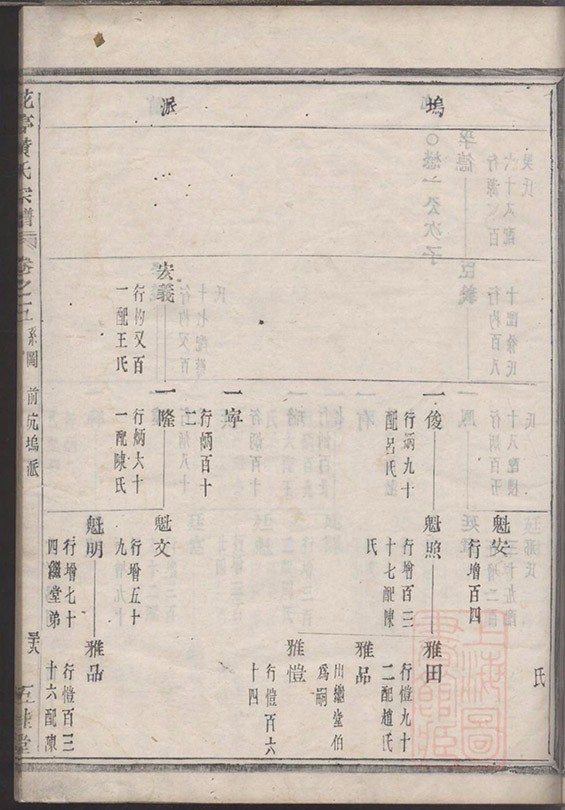 塢
派
氏
魁安
行增百四
一俊
行炳九十
配呂氏
魁照
行增百三
十七配陳
氏
雅田
行愷九十
二配趙氏
雅品
出繼堂伯
為嗣
雅愷
行愷百六
十四
一寧
行炳百十
二
宏義
行杓又百
一配王氏
一隆
行炳六十
一配陳氏
魁文
行增五十
九
魁明
行增七十
四繼堂弟
雅品
行愷百三
十六配陳
花亭黃氏宗譜
卷之五
系圖
前坑塢派
五桂堂